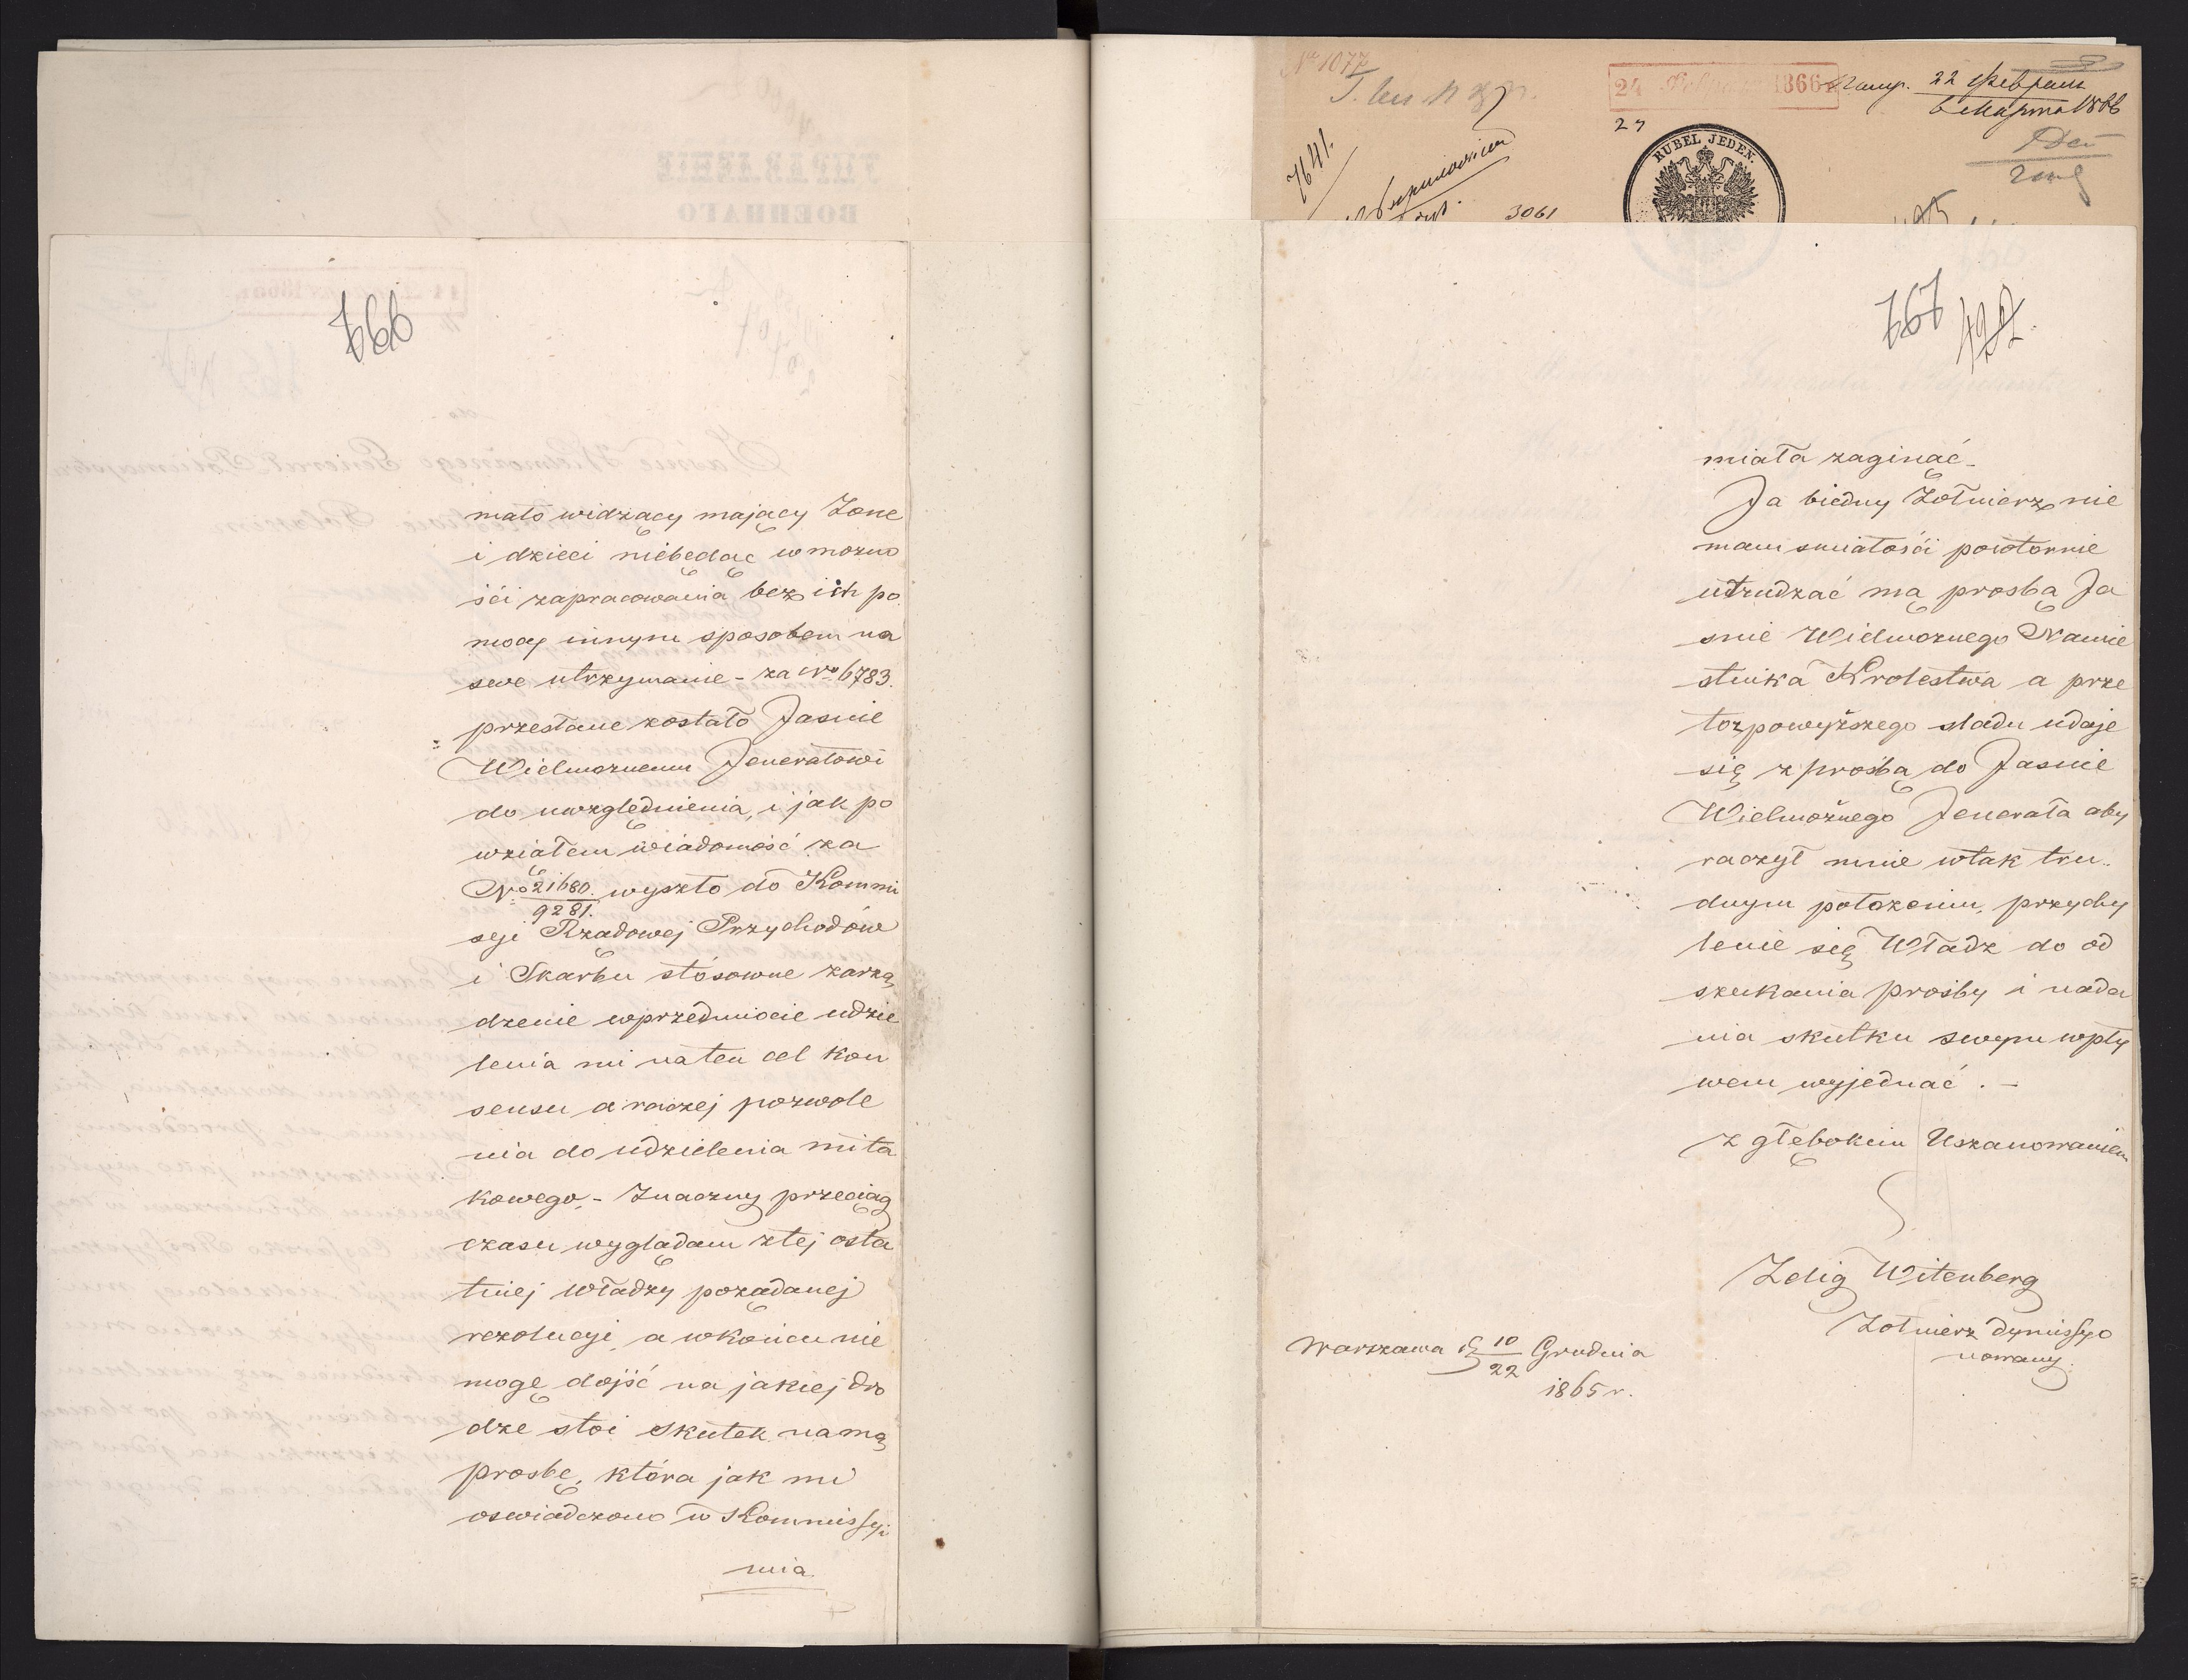 766
mało widzący mający Żone
i dzieci niebędąc w możno
ści zapracowania bez ich po
mocy innym sposobem na
swe utrzymanie - za No 6783.
przesłane zostało Jasnie
Wielmoznemu Jenerałowi
do uwzględnienia, i jak po
wziąłem wiadomość za
No 21680. wyszło do Kommi
9281.
syi Rządowej Przychodów
i Skarbu stósowne zarzą
dzenie wprzedmiocie udzie
lenia mi naten cel kon
sensu a raczej pozwole
nia do udzielenia mi ta
kowego. - Znaczny przeciąg
czasu wyglądam ztej osta
tniej Władzy pożądanej
rezolucyi, a wkońcu nie
mogę dojść na jakiej dro
dze stoi skutek na mą
prosbę, która jak mi
oswiadczono w Kommissyi
mia
No 1077
24 1866
22 Февраля
6 Марта 1866
27
7641.
RUBEL JEDEN.
3061
767
miała zaginąć.
Ja biedny Żołnierz nie
mam smiałości powtornie
utrudzać mą prosbą Ja
snie Wielmoznego Namie
stnika Krolestwa a prze
toz powyższego sladu udaje
się z prośbą do Jasnie
Wielmożnego Jenerała aby
raczył mnie wtak tru
dnym położeniu, przychy
lenie się Władz do od
szukania prośby i nada
nia skutku swym wpły
wem wyjednać. -
z głębokiem Uszanowaniem
Zelig Witenberg
Żołnierz dymissyo
nowany.
Warszawa d 10/22 Grudnia
1865 r.